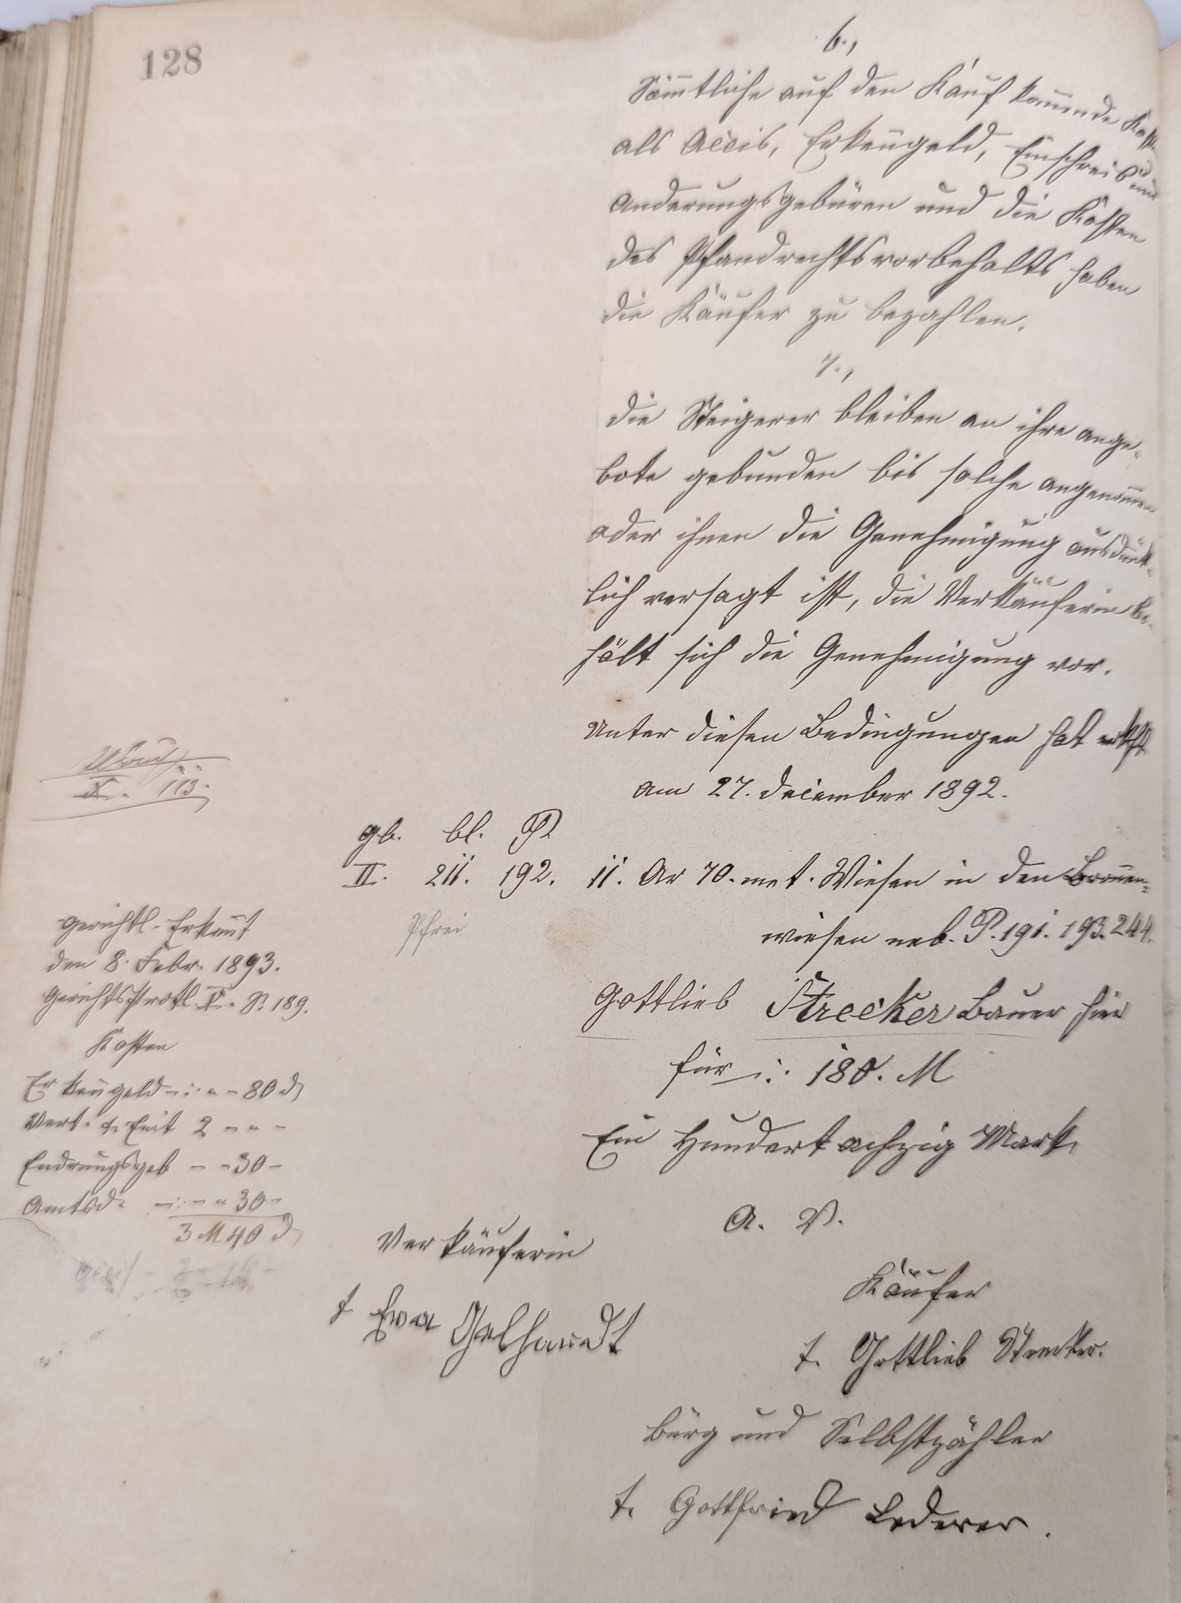 128
6.,
Sämtliche auf den Kauf kommende Kosten
als Accis, Erkenngeld, Einschreib und
Anderungsgebüren und die Kosten
des Pfandrechtsvorbehalts haben
die Käufer zu bezahlen.
7.,
Die Steigerer bleiben an ihre ange-
bote gebunden bis solche angenommen
oder ihnen die Genehmigung ausdrük-
lich versagt ist, die Verkäuferin be-
hält sich die Genehmigung vor.
Unter diesen Bedingungen hat erkft
am 27. December 1892.
X. 113.
gb. bl. P.
II. 211. 192. 11. Ar 70. met. Wiesen in den Bronnen-
Pfrei
wiesen neb. P. 191. 193. 244.
Gerichtl. Erkannt
den 8. Febr. 1893.
Gerichts Protl. X. S. 189.
Kosten
Erkenngeld -:- " - 80 d
Vert. & Enit 2 - " -
Endrungsgeb - - " 30 -
Amtsd. -:- - " 30 -
3 M 40 d
Gottlieb Strecker Bauer hier
für -:- 180. M
Ein Hundert achzig Mark,
A. V.
Verkäuferin
t Eva Gelhardt
Käufer
t. Gottlieb Strecker.
bürg und Selbstzähler
t. Gottfried Lederer.